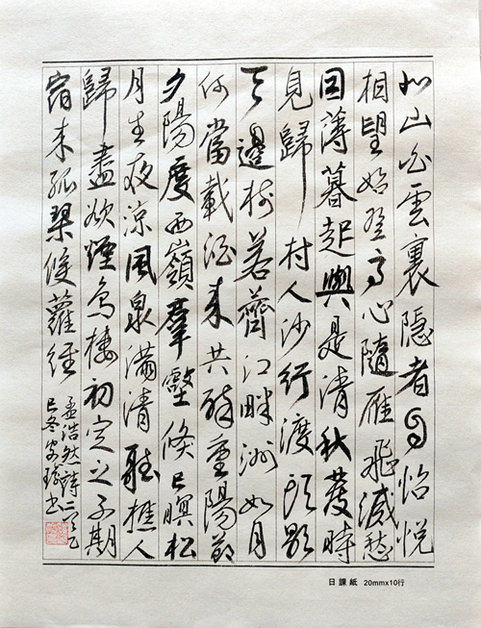 北山白雲裏隱者自怡悅
相望始登高心隨雁飛滅愁
因薄暮起興是清秋發時
見歸村人沙行渡頭歇
天邊樹若薺江畔洲如月
何當載酒來共醉重陽節
夕陽度西嶺羣壑倏已暝松
月生夜涼風泉滿清聽樵人
歸盡欲煙鳥棲初定之子期
宿來孤琴候蘿徑
孟浩然詩二首乙
巳冬書
日課紙 20mmx10行